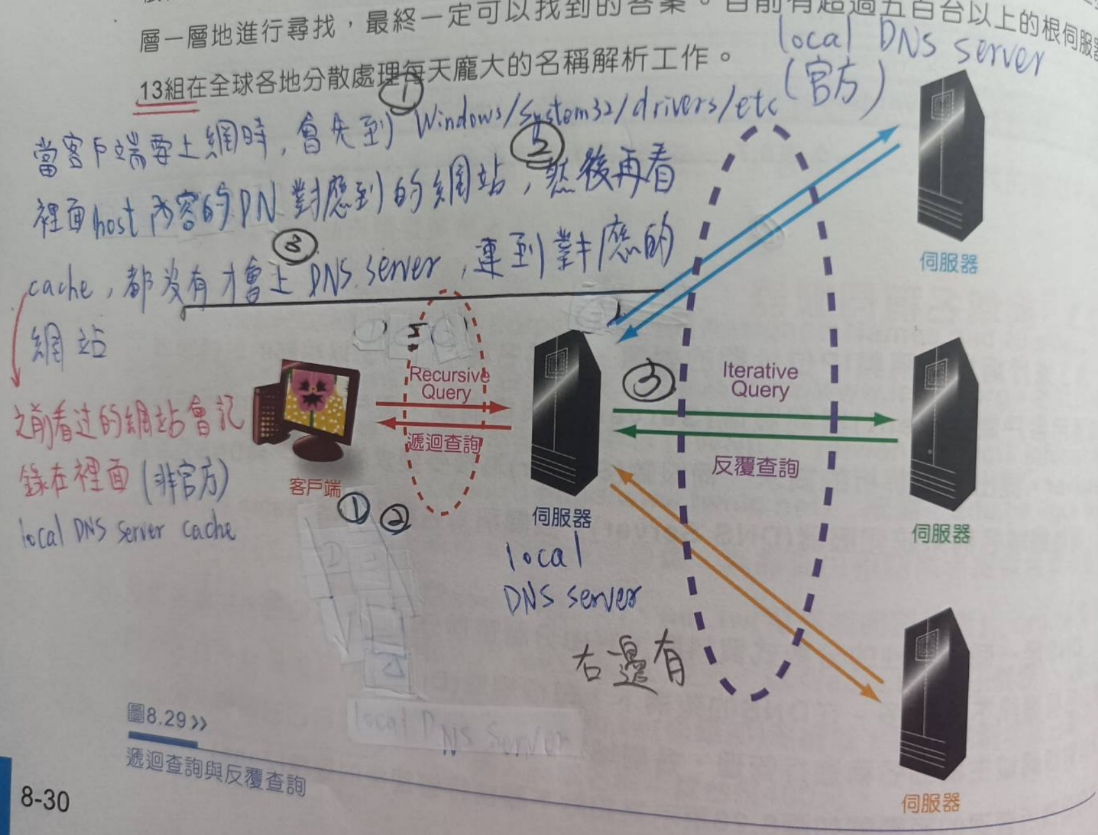 層一層地進行尋找，最終一定可以找到的答案。目前有超過五百台以上的根伺服器
13組在全球各地分散處理每天龐大的名稱解析工作。
local DNS server
(官方)
①
當客戶端要上網時，會先到 Windows/System32/drivers/etc
②
裡面host內容的DN對應到的網站，然後再看
③
cache，都沒有才會上DNS server，連到對應的
網站
之前看过的網站會記
錄在裡面(非官方)
local DNS server cache
Recursive
Query
遞迴查詢
③
Iterative
Query
反覆查詢
客戶端
①②
伺服器
伺服器
伺服器
伺服器
local
DNS server
右邊有
local DNS server
圖8.29》
遞迴查詢與反覆查詢
8-30